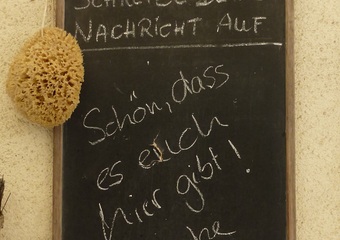 NACHRICHT AUF
Schön, dass
es euch
hier gibt!